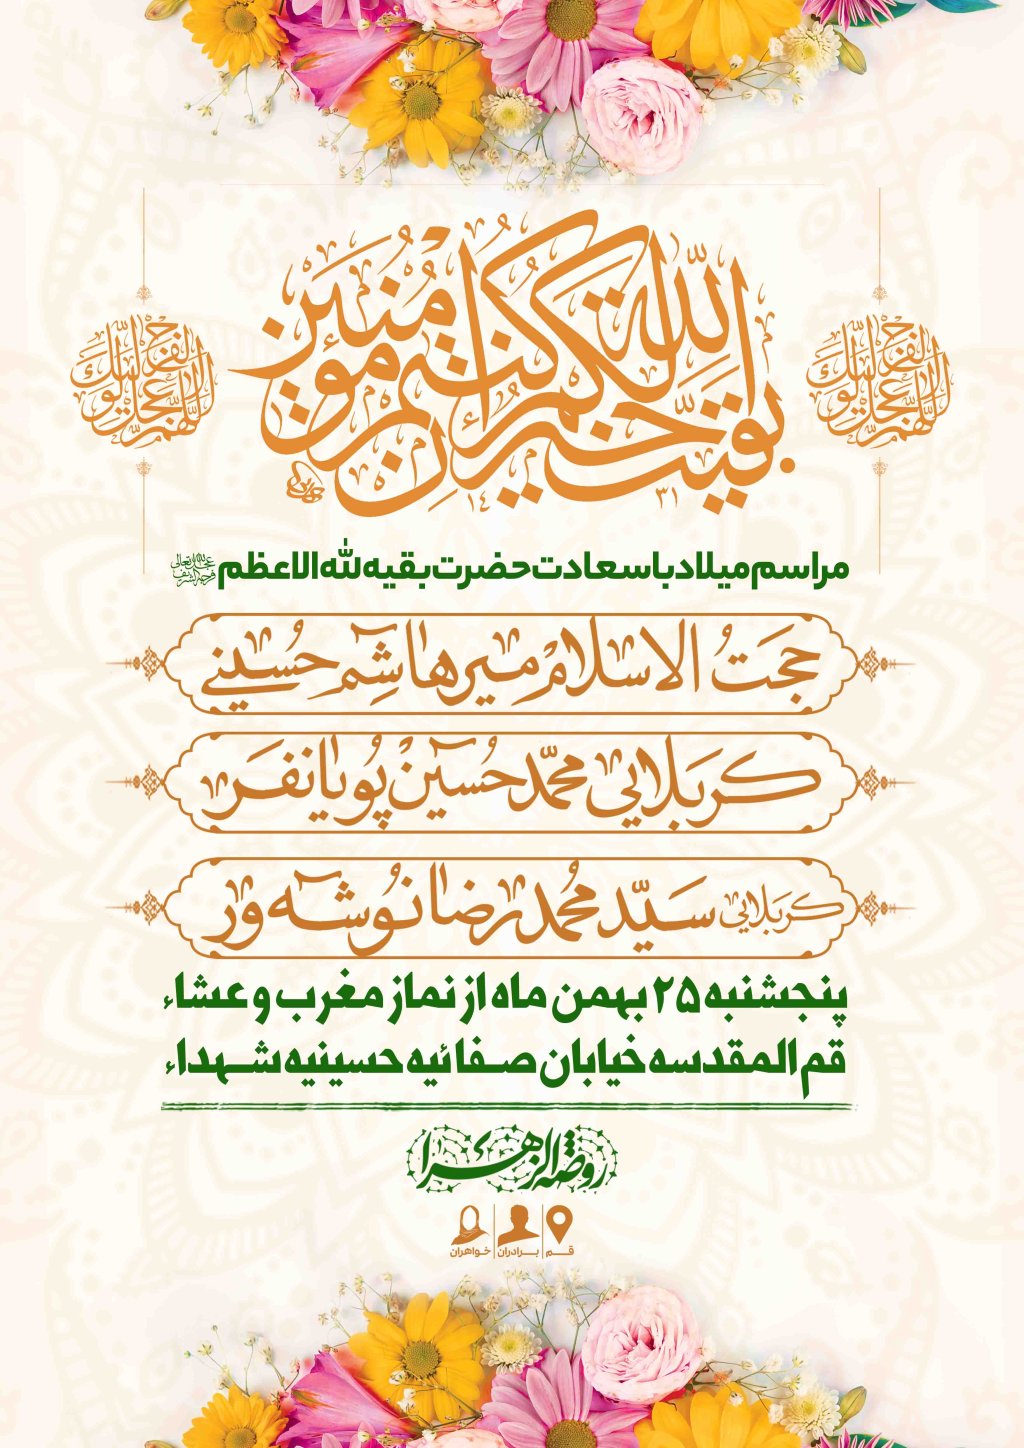 بقیت الله خیر لکم ان کنتم مؤمنین
۱۴ ۳۱
اللهم عجل لولیک الفرج
اللهم عجل لولیک الفرج
مراسم میلاد باسعادت حضرت بقیه لله الاعظم عجل الله تعالی فرجه الشریف
حجت الاسلام میرهاشم حسینی
کربلایی محمدحسین پویانفر
کربلایی سید محمدرضا نوشه ور
پنجشنبه ۲۵ بهمن ماه از نماز مغرب و عشاء
قم المقدسه خیابان صفائیه حسینیه شهداء
روضة الزهرا
قم برادران خواهران